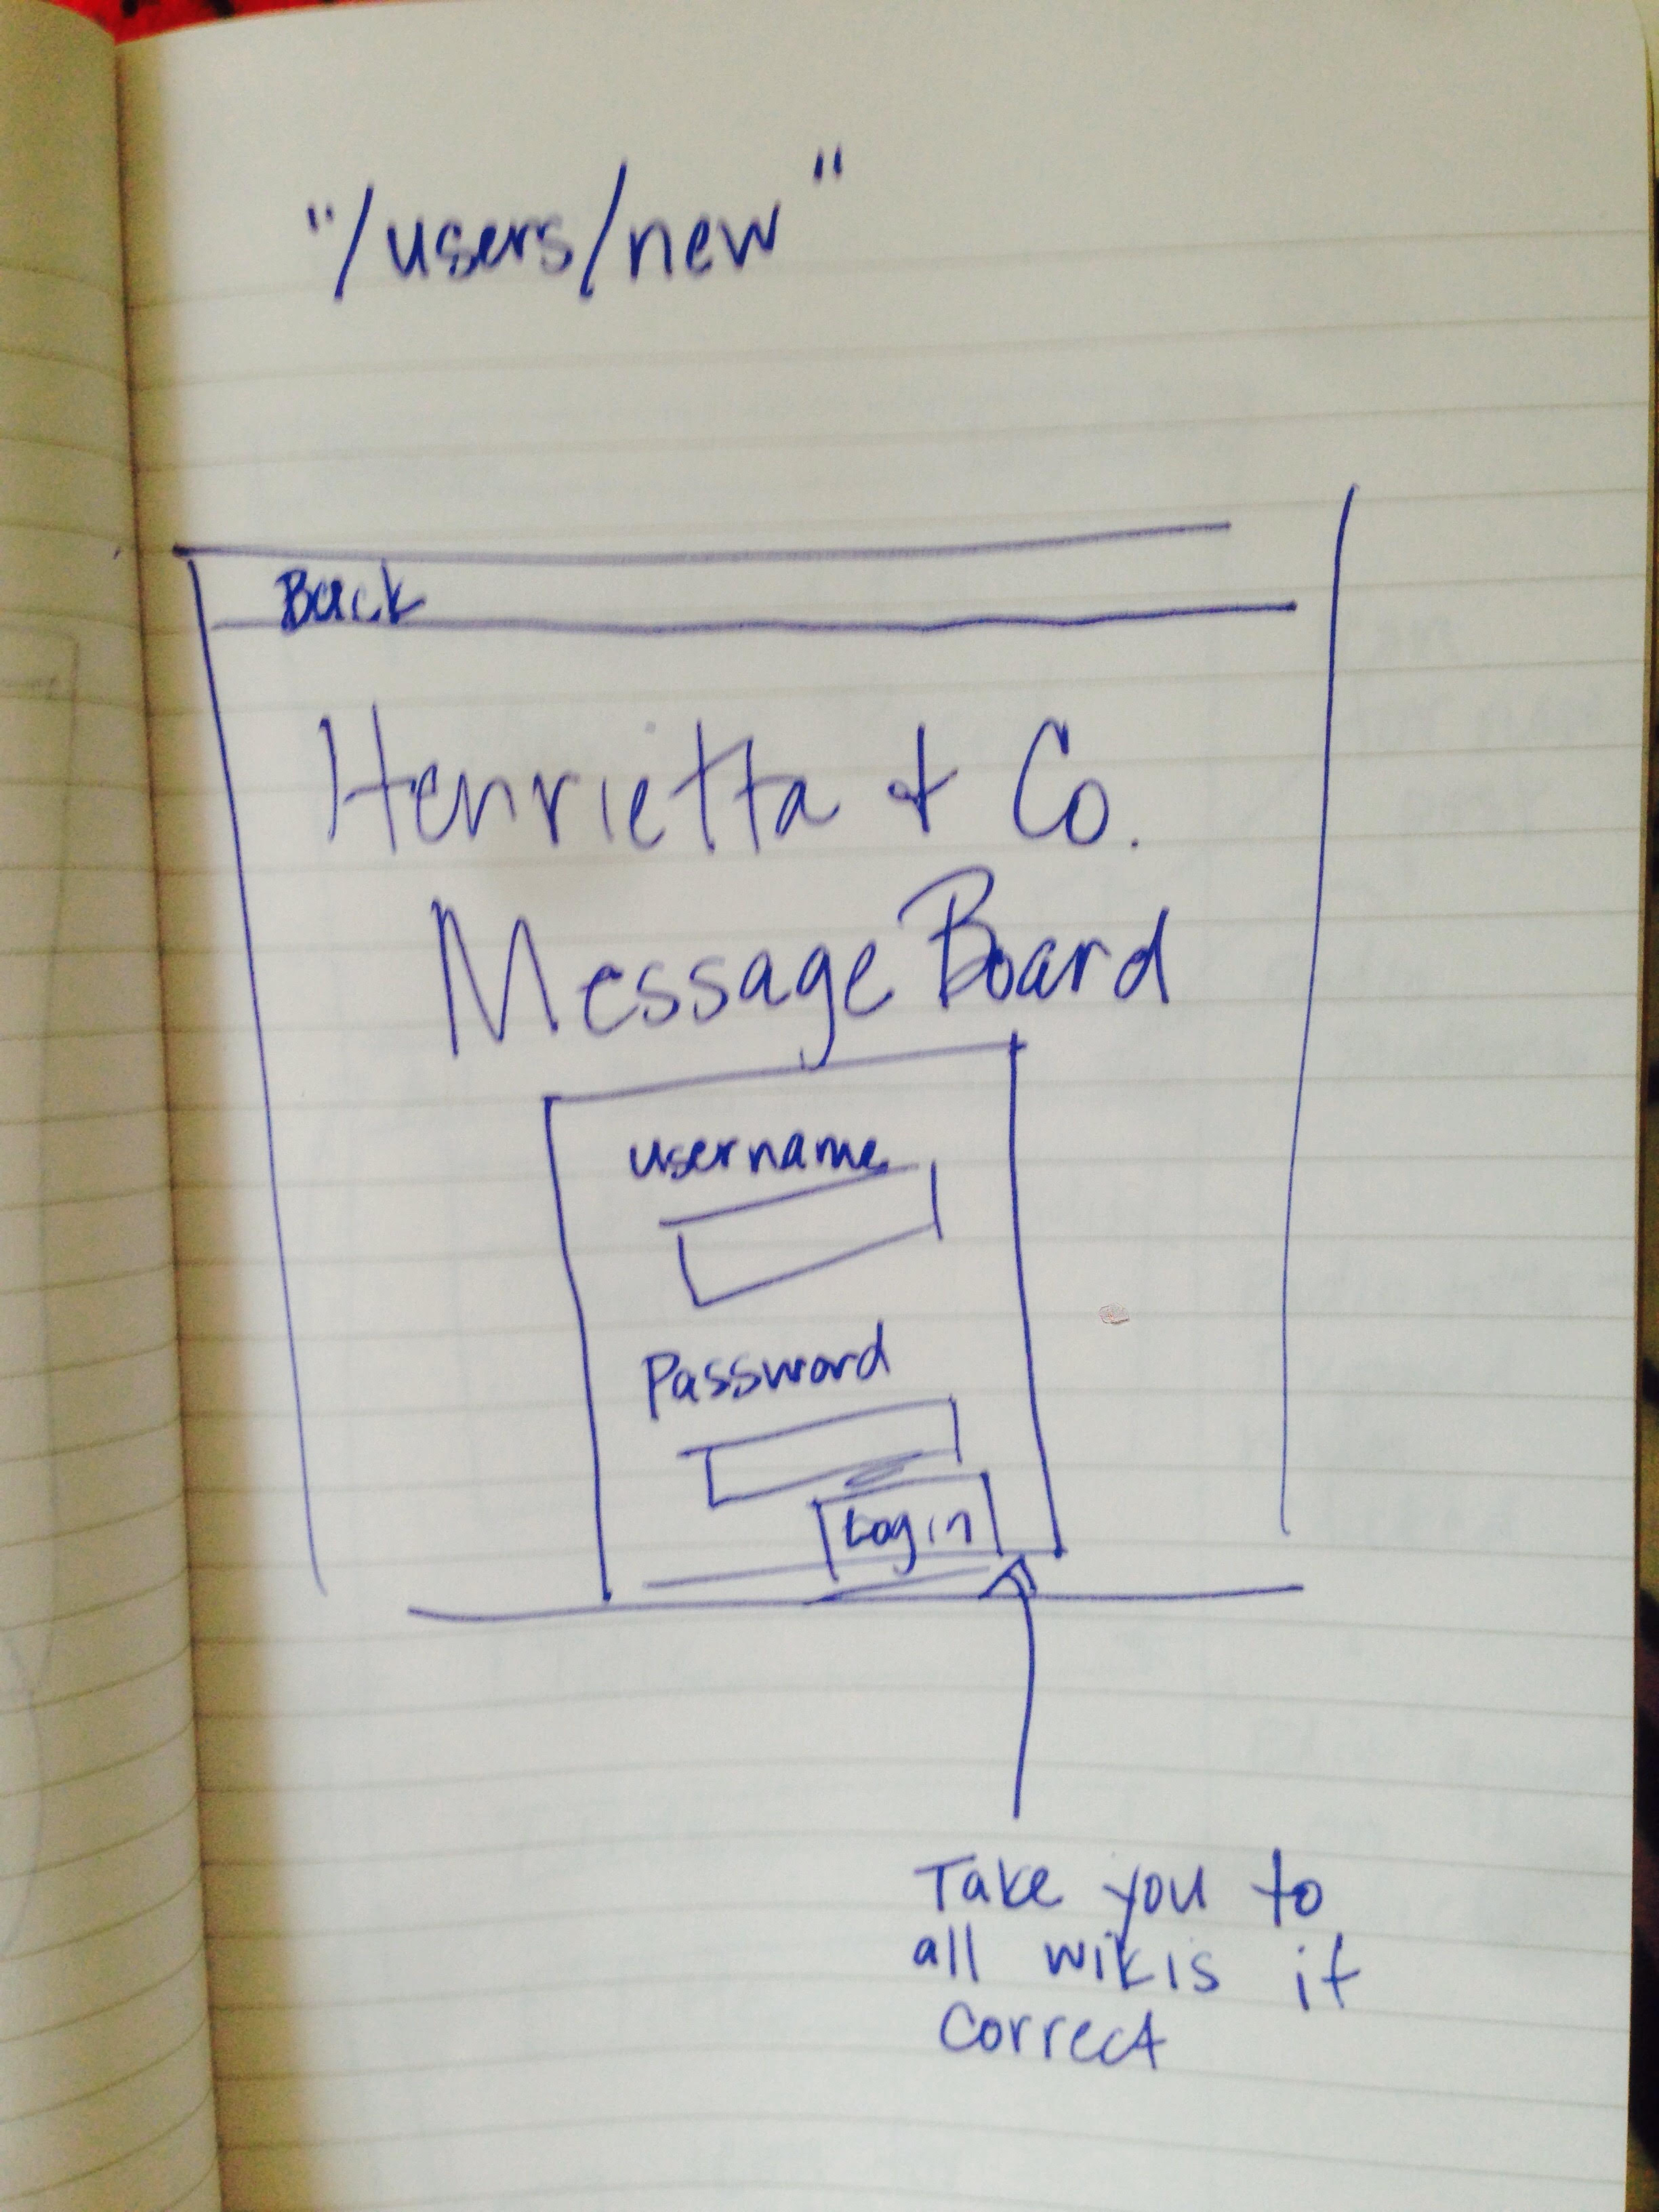 "/users/new"
Back
Henrietta + Co.
Message Board
username
Password
Login
Take you to
all wikis if
correct